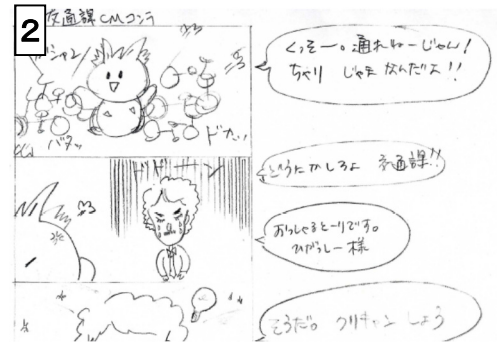 2
交通課CMコンテ
ガシャン
バタッ
ドカッ
くっそー。通れねーじゃん!
ちゃり じゃまなんだよ!!
どうにかしろよ 交通課!!
おっしゃるとーりです。
ひがっしー様
そうだ。クリキャンしよう